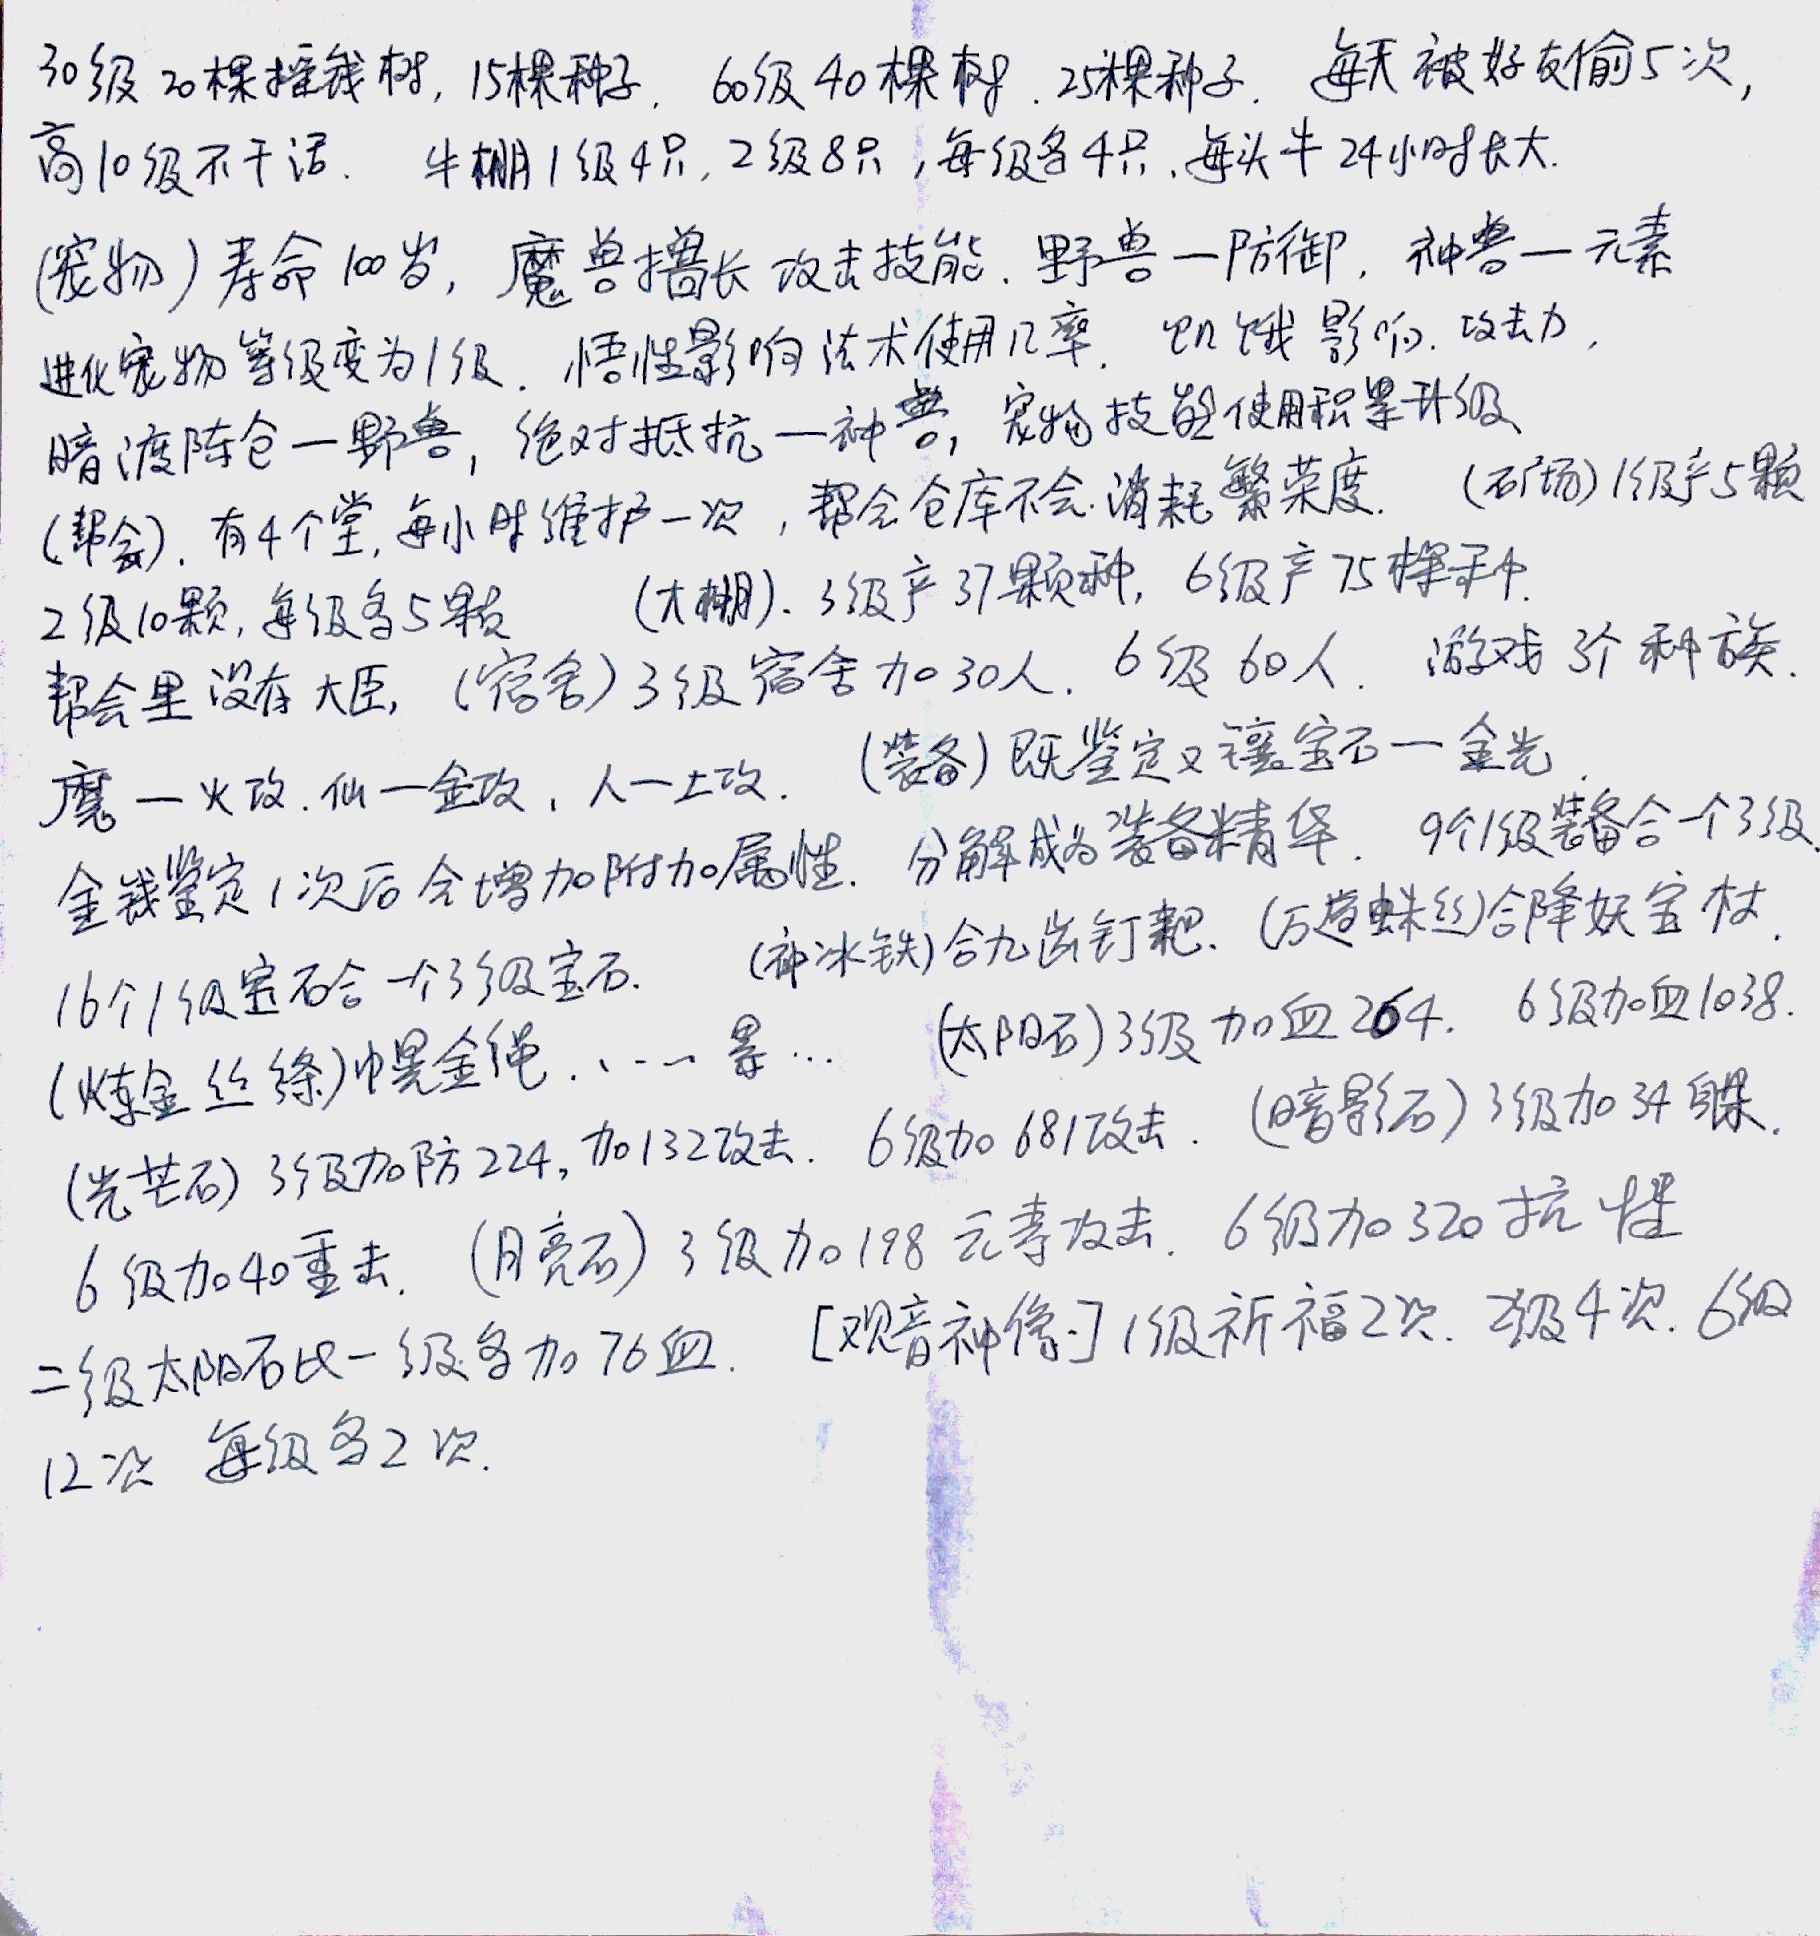 30级 20棵摇钱树, 15棵种子. 60级 40棵树. 25棵种子. 每天被好友偷5次,
高10级不干活. 牛棚1级4只, 2级8只, 每级多4只, 每头牛24小时长大.
(宠物) 寿命100岁, 魔兽擅长攻击技能. 野兽—防御, 神兽—元素
进化宠物等级变为1级. 悟性影响法术使用几率. 饥饿影响攻击力.
暗渡陈仓—野兽, 绝对抵抗—神兽, 宠物技能使用积累升级
(帮会). 有4个堂, 每小时维护一次, 帮会仓库不会消耗繁荣度. (矿场) 1级产5颗
2级10颗, 每级多5颗 (大棚). 3级产37颗种, 6级产75棵种.
帮会里没有大臣, (宿舍) 3级宿舍加30人. 6级60人. 游戏3个种族.
魔—火攻. 仙—金攻, 人—土攻. (装备) 既鉴定又镶宝石—金光.
金钱鉴定1次后会增加附加属性. 分解成为装备精华. 9个1级装备合一个3级.
16个1级宝石合一个3级宝石. (神冰铁)合九齿钉耙. (万道蛛丝)合降妖宝杖.
(炼金丝绦)幌金绳. ... (太阳石) 3级加血264. 6级加血1038.
(光芒石) 3级加防224, 加132攻击. 6级加681攻击. (暗影石) 3级加34躲.
6级加40重击. (月亮石) 3级加198元素攻击. 6级加320抗性
二级太阳石比一级多加76血. [观音神像] 1级祈福2次. 2级4次. 6级
12次 每级多2次.